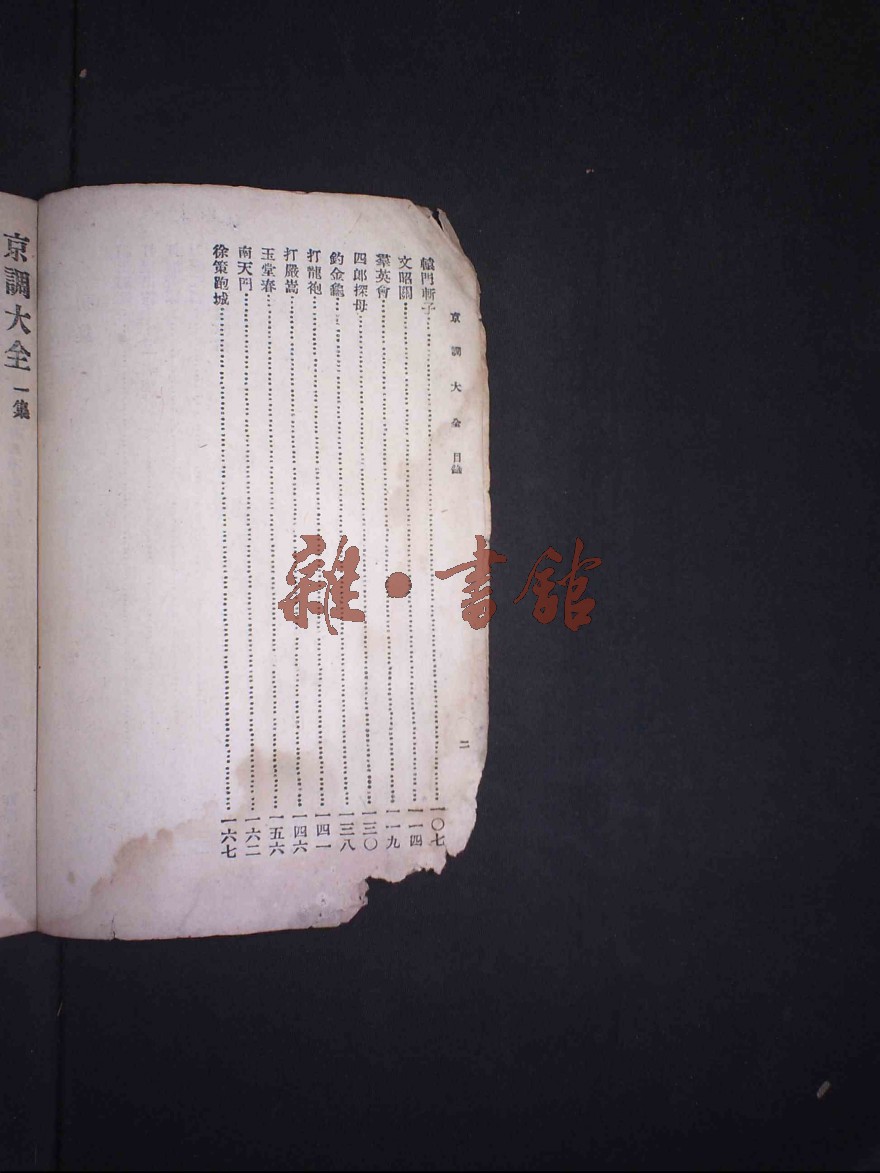 京調大全 目錄
二
轅門斬子……一〇七
文昭關……一一四
羣英會……一一九
四郎探母……一三〇
釣金龜……一三八
打龍袍……一四一
打嚴嵩……一四六
玉堂春……一五六
南天門……一六二
徐策跑城……一六七
京調大全 一集
雜·書館